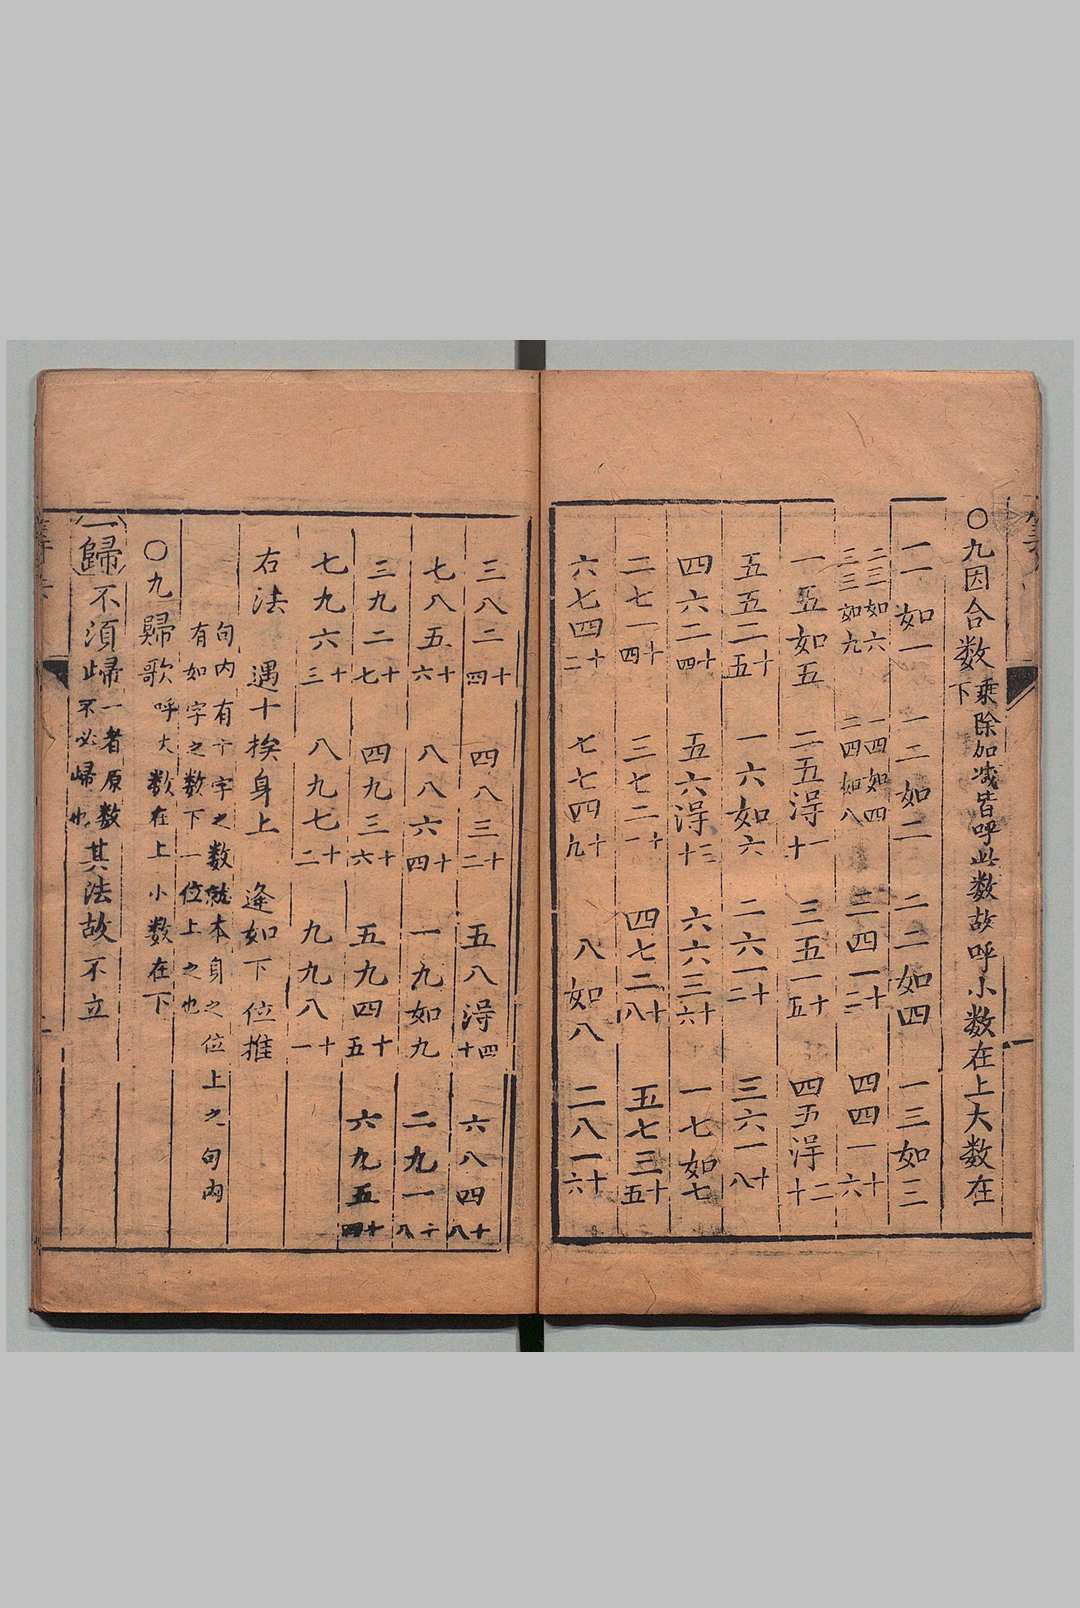 ○九因合数乘除加减皆呼此数故呼小数在上大数在下
一一如一 一二如二 二二如四 一三如三
二三如六 三三如九 一四如四 二四如八 三四一十二 四四一十六
一五如五 二五得一十 三五一十五 四五得二十
五五二十五 一六如六 二六一十二 三六一十八
四六二十四 五六得三十 六六三十六 一七如七
二七一十四 三七二十一 四七二十八 五七三十五
六七四十二 七七四十九 八如八 二八一十六
三八二十四 四八三十二 五八得四十 六八四十八
七八五十六 八八六十四 一九如九 二九一十八
三九二十七 四九三十六 五九四十五 六九五十四
七九六十三 八九七十二 九九八十一
右法 遇十挨身上 逢如下位推
句内有十字之数就本身之位上之句內
有如字之数下一位上之也
○九歸歌呼大数在上小数在下
一歸不須歸一者原数不必歸也其法故不立